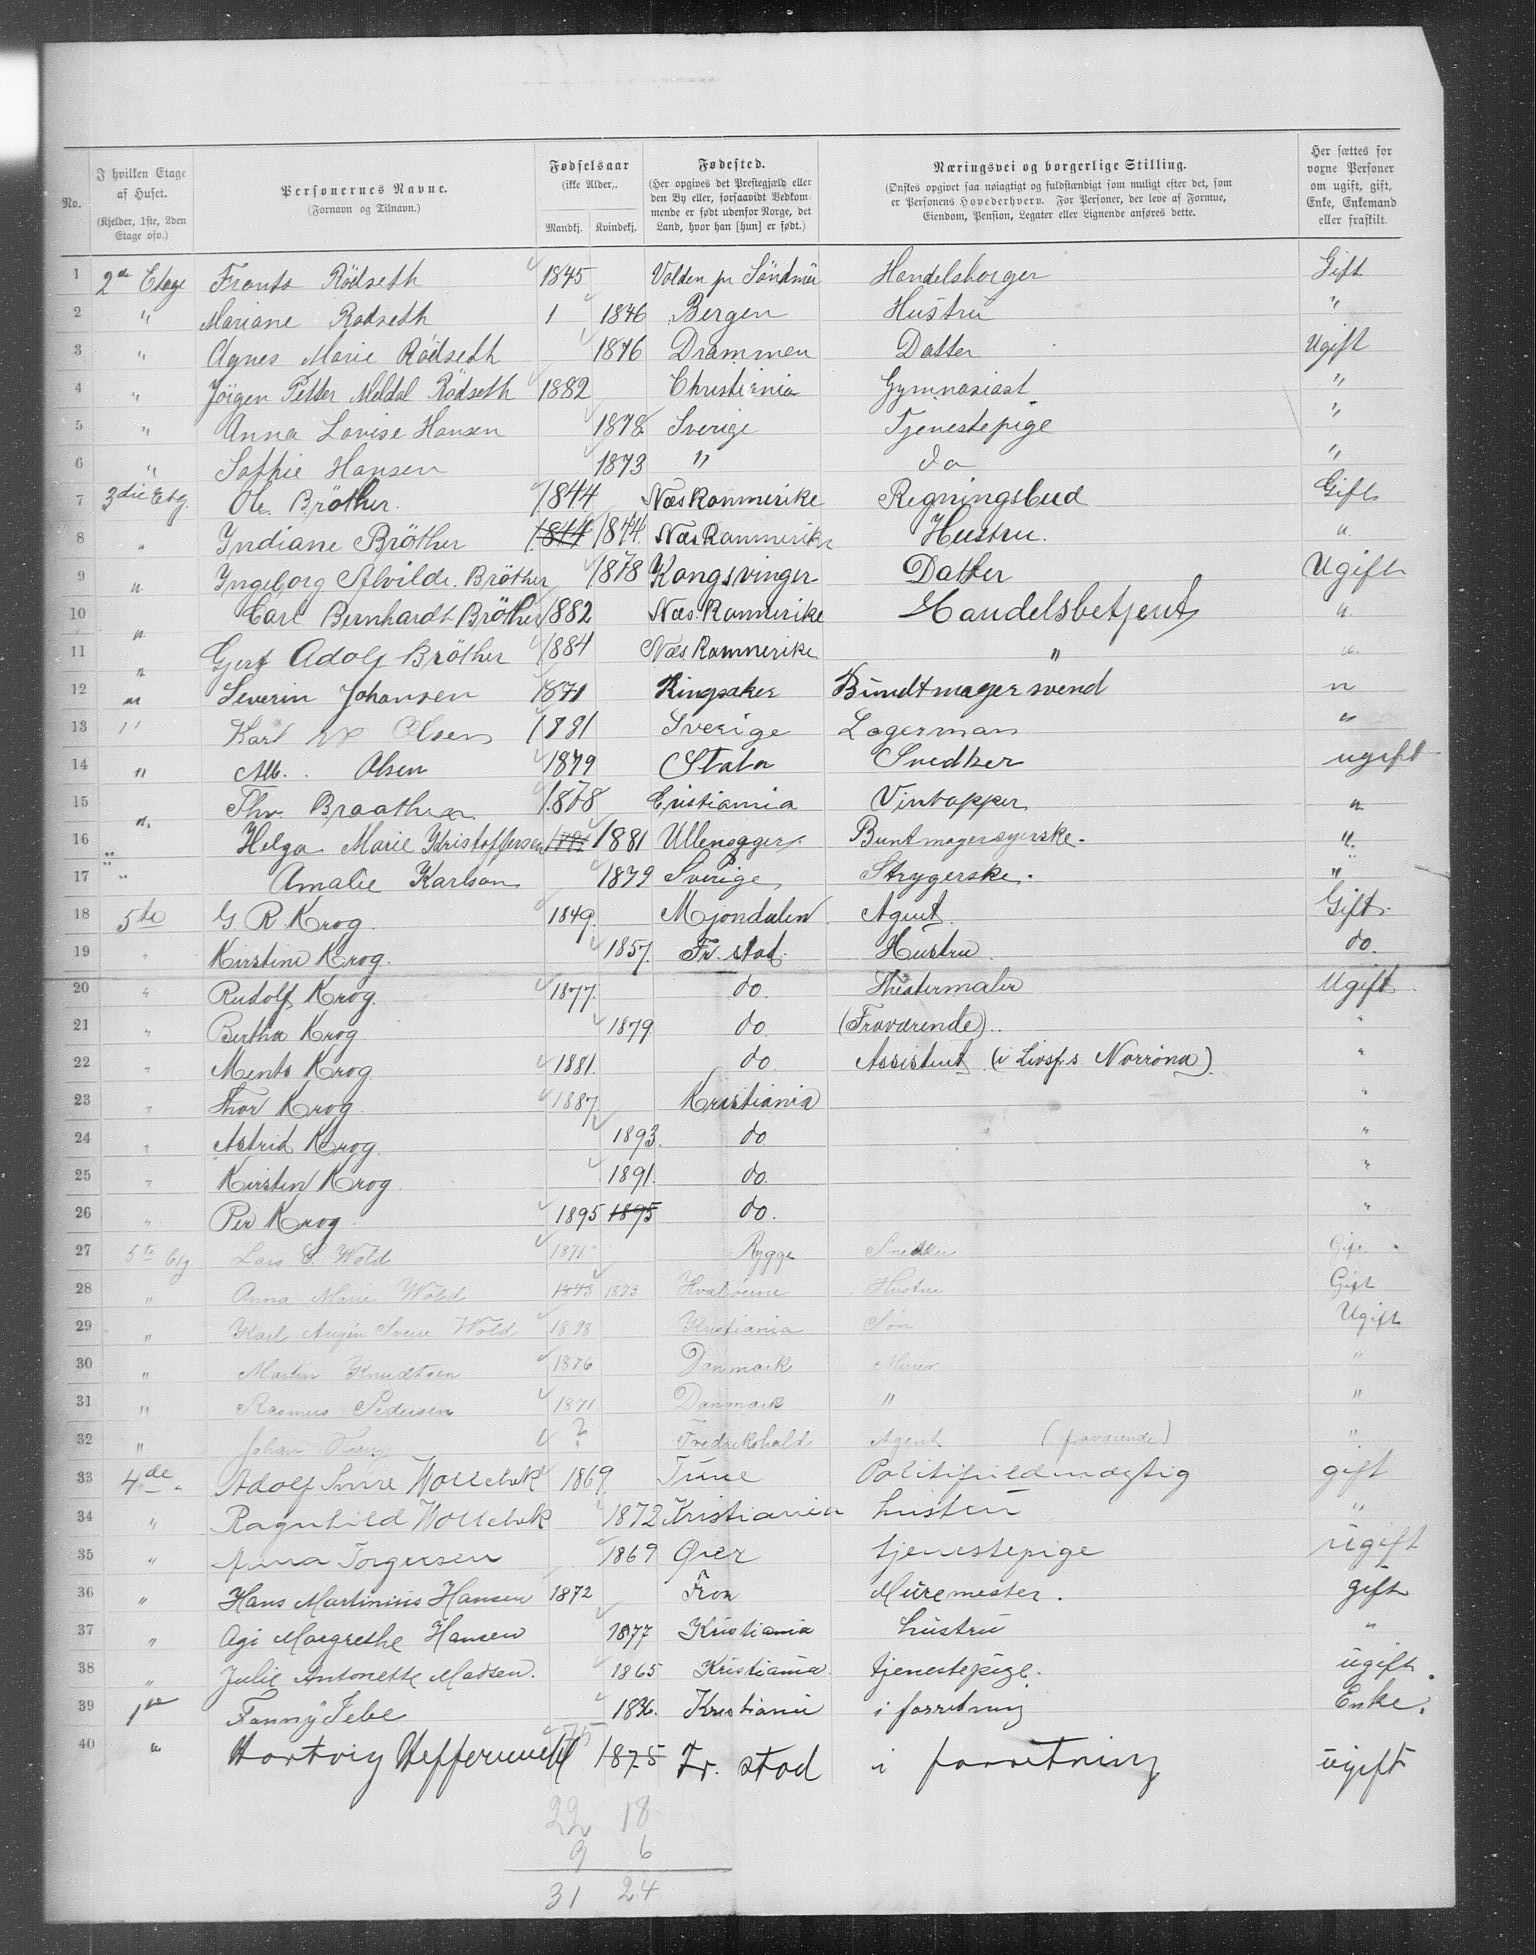 No. | I hvilken Etage af Huset. (Kjelder, 1ste, 2den Etage osv.) | Personernes Navne. (Fornavn og Tilnavn.) | Fødselsaar (ikke Alder). Mandkj. Kvindekj. | Fødested. (Her opgives det Prestegjæld eller den By eller, forsaavidt Vedkommende er født udenfor Norge, det Land, hvor han [hun] er født.) | Næringsvei og borgerlige Stilling. (Ønskes opgivet saa nøiagtigt og fuldstændigt som muligt efter det, som er Personens Hovederhverv. For Personer, der leve af Formue, Eiendom, Pension, Legater eller Lignende anføres dette. | Her sættes for voxne Personer om ugift, gift, Enke, Enkemand eller fraskilt.
1 2de Etage Frants Rödseth 1845 Volden pr Söndmör Handelsborger Gift
2 " Mariane Rödseth 1 1846 Bergen Hustru "
3 " Agnes Marie Rödseth 1876 Drammen Datter Ugift
4 " Jörgen Petter Meldal Rödseth 1882 Christiania Gymnasiast "
5 " Anna Lovise Hansen 1878 Sverige Tjenestepige "
6 " Soffie Hansen 1873 " do "
7 3die Etg. Ole Bröther 1844 Næs Rommerike Regningsbud Gift
8 " Indiane Bröther 1844 1844. Næs Rommerike Hustru. "
9 " Ingeborg Alvilde Bröther 1878 Kongsvinger Datter Ugift
10 " Carl Bernhardt Bröther 1882 Næs Rommerike Handelsbetjent "
11 " Gert Adolf Bröther 1884 Næs Rommerike " "
12 " Severin Johansen 1871 Ringsaker Bundtmagersvend "
13 " Karl Olsen 1881 Sverige Lagerman "
14 " Alb. Olsen 1879 Snedker ugift
15 " Thv. Braathen 1878 Cristiania Vintapper "
16 " Helga Marie Kristoffersen 1881 Ullensager Buntmagersyerske "
17 " Amalie Karlson 1879 Sverige Strygerske. "
18 5te G R Krog 1849. Mjondalen Agent. Gift.
19 " Kirstine Krog. 1857. Fr. stad. Hustru. do.
20 " Rudolf Krog. 1877. do. Theatermaler Ugift
21 " Bertha Krog 1879. do. (Fraværende). "
22 " Ments Krog 1881. do. Assistent (i Livsf.s. Norröna) "
23 " Thor Krog 1887. Kristiania "
24 " Astrid Krog. 1893. do "
25 " Kirsten Krog. 1891. do. "
26 " Per Krog. 1895 1895 do. "
27 5te Etg Lars E. Wold 1871 Rygge Snedker Gift
28 " Anna Marie Wold 1873 1873 Hvaløerne Hustru Gift
29 " Karl Augén Sverre Wold 1898 Kristiania Søn Ugift
30 " Martin Knudtsen 1876 Danmark Murer "
31 " Rasmus Pedersen 1871 Danmark " "
32 " Johan ? Fredrikshald Agent (fraværende) "
33 4de Adolf 1869 Tune Politifuldmægtig gift
34 " Ragnhild 1872 Kristiania hustru "
35 " Anna Torgersen 1869 Øier tjenestepige ugift
36 " Hans Martinius Hansen 1872 Fron Muremester. gift
37 " Agi Margrethe Hansen 1877 Kristiania hustru "
38 " Julie Antonette Madsen. 1865 Kristiania tjenestepige. ugift.
39 1ste Fanny Jebe Kristiania i forretning Enke.
40 " Hartvig 75 1875 Fr. stad i forretning ugift
22 18
9 6
31 24